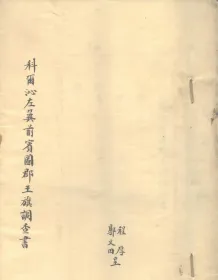 科爾沁左翼前賓圖郡王旗調查書
程厚
鄭文田呈